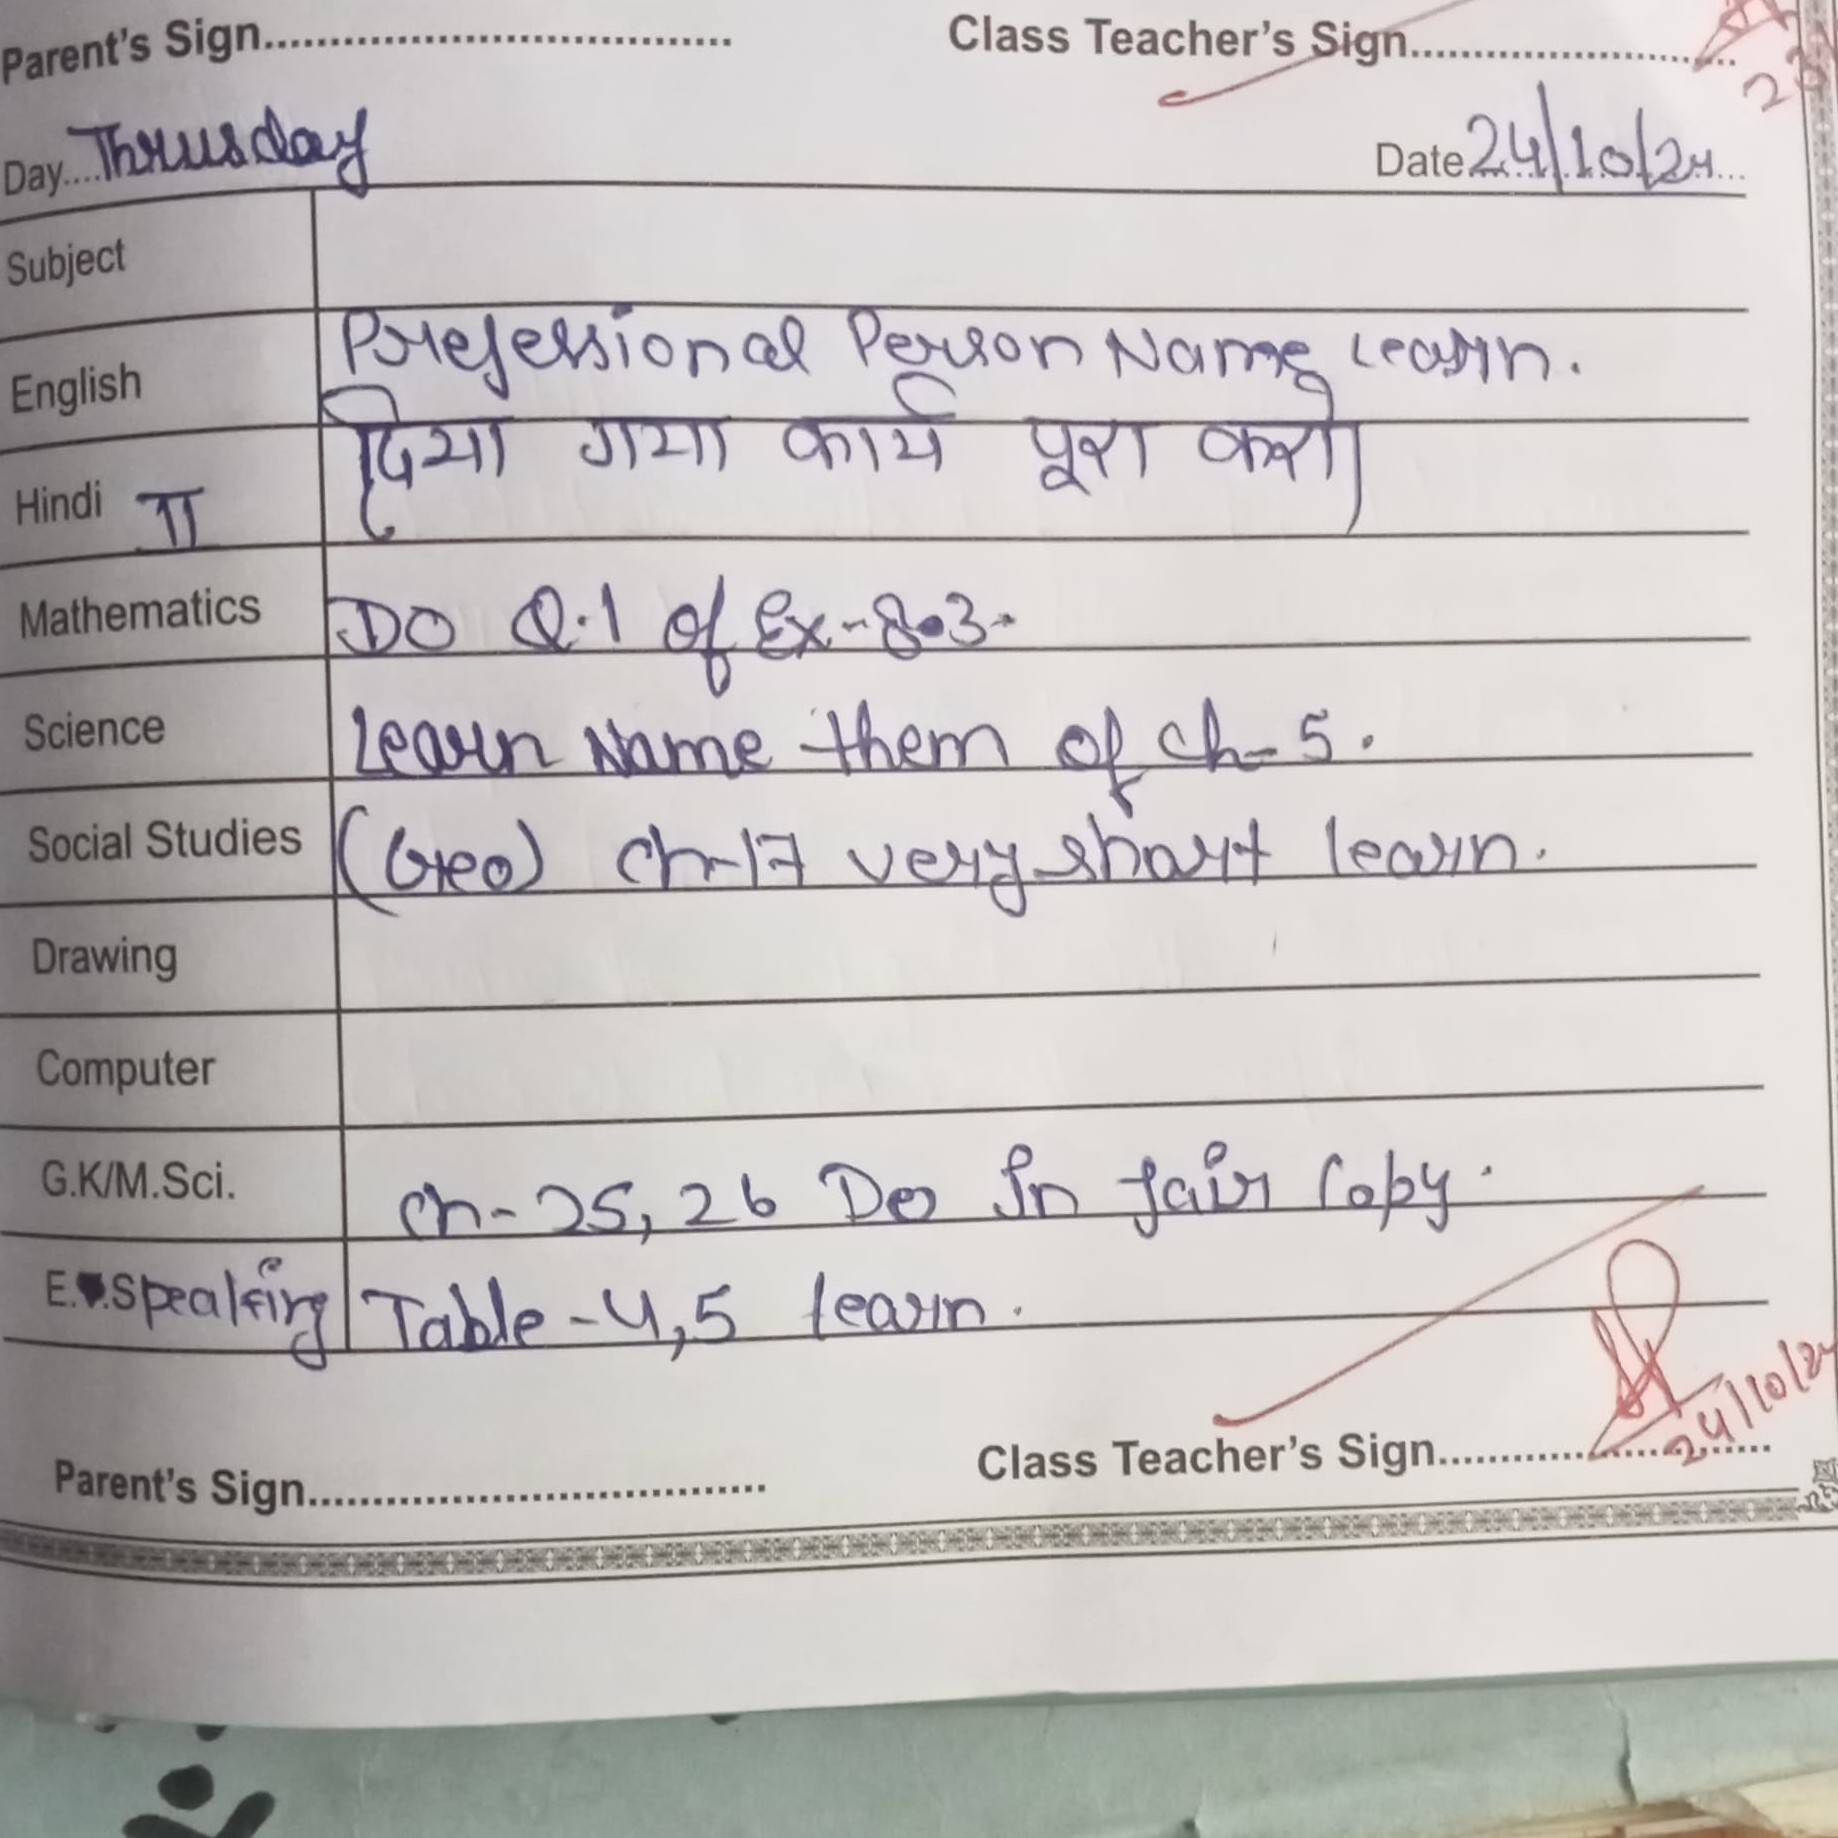 Parent's Sign.................................... Class Teacher's Sign.........................
23
Day....Thrusday Date 24/10/24...
Subject
English Prefessional Person Name Learn.
Hindi II दिया गया कार्य पूरा करो।
Mathematics DO Q.1 of Ex-8.3.
Science Learn Name them of ch-5.
Social Studies (Geo) ch-17 very short learn.
Drawing
Computer
G.K/M.Sci. ch-25, 26 Do In fair Copy.
E. Speaking Table-4,5 learn.
24/10/24
Parent's Sign.................................... Class Teacher's Sign.........................